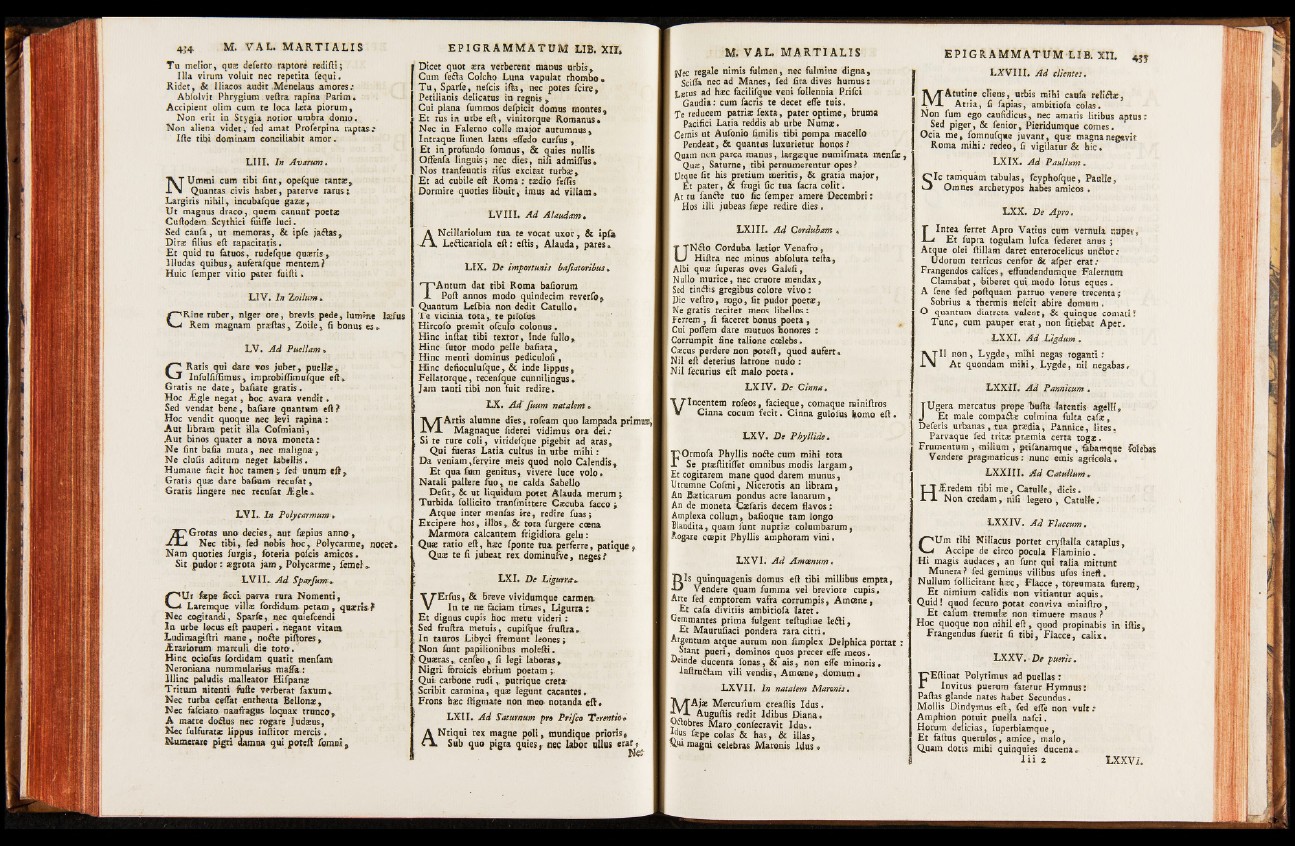 434 M. VAL. MARTIALIS
Tu melior, quæ deserto raptore redisti;
Illa virum voluit nec repetita sequi.
Ridet, & Iliacos audit Menelaus amores:
Absolvit Phrygium vestra rapina Parim.
Accipient olim cum te loca læta piorum,
Non erit in Stygia notior umbra domo.
Non aliena videt, sed amat Proserpina raptas:
Iste tibi dominam conciliabit amor.
LIII. In Avarum.
NUmmi cum tibi sint, opesque tantæ,
Quantas civis habet, paterve rarus:
Largiris nihil, incubasque gazæ,
Ut magnus draco, quem canunt poetæ
Custodem Scythici fuisse luci.
Sed causa, ut memoras, & ipse jactas,
Diræ filius est rapacitatis.
Et quid tu fatuos, rudesque quæris,
Illudas quibus, auferasque mentem?
Huic semper vitio pater fuisti.
LIV. In Zoilum.
CRine ruber, niger ore, brevis pede, lumine læsus
Rem magnam præstas, Zoile, si bonus es.
LV. Ad Puellam.
GRatis qui dare vos jubet, puellæ,
Insulsissimus, improbissimusque est.
Gratis ne date, basiate gratis.
Hoc Ægle negat, hoc avara vendit.
Sed vendat bene, basiare quantum est?
Hoc vendit quoque nec levi rapina:
Aut libram petit illa Cosmiani,
Aut binos quater a nova moneta:
Ne sint basia muta, nec maligna,
Ne clusis aditum neget labellis.
Humane facit hoc tamen; sed unum est,
Gratis quæ dare basium recusat,
Gratis lingere nec recusat Ægle.
LVI. In Polycarmum.
ÆGrotas uno decies, aut sæpius anno,
Nec tibi, sed nobis hoc, Polycarme, nocet.
Nam quoties surgis, soteria poscis amicos.
Sit pudor: ægrota jam, Polycarme, semel.
LVII. Ad Sparsum.
CUr sæpe sicci parva rura Nomenti,
Laremque villæ sordidum petam, quæris?
Nec cogitandi, Sparse, nec quiescendi
In urbe locus est pauperi. negant vitam
Ludimagistri mane, nocte pistores,
Ærariorum marculi die toto.
Hinc ociosus sordidam quatit mensam
Neroniana nummularius massa:
Illinc paludis malleator Hispanæ
Tritum nitenti fuste verberat saxum.
Nec turba cessat entheata Bellonæ,
Nec fasciato naufragus loquax trunco,
A matre doctus nec rogare Judæus,
Nec sulfuratæ lippus institor mercis.
Numerare pigri damna qui potest somni,
EPIGRAMMATUM LIB. XII.
Dicet quot æra verberent manus urbis,
Cum secta Colcho Luna vapulat rhombo.
Tu, Sparse, nescis ista, nec potes scire,
Petilianis delicatus in regnis,
Cui plana summos despicit domus montes,
Et rus in urbe est, vinitorque Romanus.
Nec in Falerno colle major autumnus,
Intraque limen latus essedo cursus,
Et in profundo somnus, & quies nullis
Offensa linguis; nec dies, nisi admissus.
Nos transeuntis risus excitat turbæ,
Et ad cubile est Roma: tædio fessis
Dormire quoties libuit, imus ad villam.
LVIII. Ad Alaudam.
ANcillariolum tua te vocat uxor, & ipsa
Lecticariola est: estis, Alauda, pares.
LIX. De importunis basiatoribus.
TAntum dat tibi Roma basiorum
Post annos modo quindecim reverso,
Quantum Lesbia non dedit Catullo.
Te vicinia tota, te pilosus
Hircoso premit osculo colonus.
Hinc instat tibi textor, inde fullo,
Hinc sutor modo pelle basiata,
Hinc menti dominus pediculosi,
Hinc defioculusque, & inde lippus,
Fellatorque, recensque cunnilingus.
Jam tanti tibi non fuit redire.
LX. Ad suum natalem.
MArtis alumne dies, roseam quo lampada primum,
Magnaque siderei vidimus ora dei:
Si te rure coli, viridesque pigebit ad aras,
Qui fueras Latia cultus in urbe mihi:
Da veniam, servire meis quod nolo Calendis,
Et qua sum genitus, vivere luce volo.
Natali pallere suo, ne calda Sabello
Desit, & ut liquidum potet Alauda merum;
Turbida sollicito transmittere Cæcuba sacco;
Atque inter mensas ire, redire suas;
Excipere hos, illos, & tota surgere cœna
Marmora calcantem frigidiora gelu:
Quæ ratio est, hæc sponte tua perferre, patique,
Quæ te si jubeat rex dominusve, neges?
LXI. De Ligurra.
VErsus, & breve vividumque carmen
In te ne faciam times, Ligurra:
Et dignus cupis hoc metu videri:
Sed frustra metuis, cupisque frustra.
In tauros Libyci fremunt leones;
Non sunt papilionibus molesti.
Quæras, censeo, si legi laboras,
Nigri fornicis ebrium poetam;
Qui carbone rudi, putrique creta
Scribit carmina, quæ legunt cacantes.
Frons hæc stigmate non meo notanda est.
LXII. Ad Saturnum pro Prisco Terentio.
ANtiqui rex magne poli, mundique prioris,
Sub quo pigra quies, nec labor ullus erat,
Nec
M. VAL. MARTIALIS
Nec regale nimis fulmen, nec fulmine digna,
Scissa nec ad Manes, sed sita dives humus:
Lætus ad hæc facilisque veni sollennia Prisci
Gaudia: cum sacris te decet esse tuis.
Te reducem patriæ sexta, pater optime, bruma
Pacifici Latia reddis ab urbe Numæ.
Cernis ut Ausonio similis tibi pompa macello
Pendeat, & quantus luxurietur honos?
Quam non parca manus, largæque numismata mensæ,
Quæ, Saturne, tibi pernumerentur opes?
Utque sit his pretium meritis, & gratia major,
Et pater, & frugi sic tua sacra colit.
At tu sancte tuo sic semper amere Decembri:
Hos illi jubeas sæpe redire dies.
LXIII. Ad Cordubam.
UNcto Corduba lætior Venafro,
Histra nec minus absoluta testa,
Albi quæ superas oves Galesi,
Nullo murice, nec cruore mendax,
Sed tinctis gregibus colore vivo:
Dic vestro, rogo, sit pudor poetæ,
Ne gratis recitet meos libellos:
Ferrem, si faceret bonus poeta,
Cui possem dare mutuos honores:
Corrumpit sine talione cœlebs.
Cæcus perdere non potest, quod aufert.
Nil est deterius latrone nudo:
Nil securius est malo poeta.
LXIV. De Cinna.
VIncentem roseos, facieque, comaque ministros
Cinna cocum fecit. Cinna gulosus homo est.
LXV. De Phyllide.
FOrmosa Phyllis nocte cum mihi tota
Se præstitisset omnibus modis largam,
Et cogitarem mane quod darem munus,
Utrumne Cosmi, Nicerotis an libram,
An Bæticarum pondus acre lanarum,
An de moneta Cæsaris decem flavos:
Amplexa collum, basioque tam longo
Blandita, quam sunt nuptiæ columbarum,
Rogare cœpit Phyllis amphoram vini.
LXVI. Ad Amœnum.
BIs quinquagenis domus est tibi millibus empta,
Vendere quam summa vel breviore cupis.
Arte sed emptorem vafra corrumpis, Amœne,
Et casa divitiis ambitiosa latet.
Gemmantes prima fulgent testudine lecti,
Et Maurusiaci pondera rara citri.
Argentum atque aurum non simplex Delphica portat:
Stant pueri, dominos quos precer esse meos.
Deinde ducenta sonas, & ais, non esse minoris.
Instructam vili vendis, Amœne, domum.
LXVII. In natalem Maronis.
MAjæ Mercurium creastis Idus.
Augustis redit Idibus Diana.
Octobres Maro consecravit Idus.
Idus sæpe colas & has, & illas,
Qui magni celebras Maronis Idus.
EPIGRAMMATUM LIB. XII. 435
LXVIII. Ad clientes.
MAtutine cliens, urbis mihi causa relictæ,
Atria, si sapias, ambitiosa colas.
Non sum ego causidicus, nec amaris litibus aptus:
Sed piger, & senior, Pieridumque comes.
Ocia me, somnusque juvant, quæ magna negavit
Roma mihi: redeo, si vigilatur & hic.
LXIX. Ad Paullum.
SIc tamquam tabulas, scyphosque, Paulle,
Omnes archetypos habes amicos.
LXX. De Apro.
LIntea ferret Apro Vatius cum vernula nuper,
Et supra togulam lusca sederet anus;
Atque olei stillam daret enterocelicus unctor:
Udorum tetricus censor & asper erat:
Frangendos calices, effundendumque Falernum
Clamabat, biberet qui modo lotus eques.
A sene sed postquam patruo venere trecenta;
Sobrius a thermis nescit abire domum.
O quantum diatreta valent, & quinque comati!
Tunc, cum pauper erat, non sitiebat Aper.
LXXI. Ad Ligdum.
NIl non, Lygde, mihi negas roganti:
At quondam mihi, Lygde, nil negabas.
LXXII. Ad Pannicum.
JUgera mercatus prope busta latentis agelli,
Et male compactæ culmina fulta casæ,
Deseris urbanas, tua prædia, Pannice, lites,
Parvaque sed tritæ præmia certa togæ.
Frumentum, milium, ptisanamque, fabamque solebas
Vendere pragmaticus: nunc emis agricola.
LXXIII. Ad Catullum.
HÆredem tibi me, Catulle, dicis.
Non credam, nisi legero, Catulle.
LXXIV. Ad Flaccum.
CUm tibi Niliacus portet crystalla cataplus,
Accipe de circo pocula Flaminio.
Hi magis audaces, an sunt qui talia mittunt
Munera? sed geminus vilibus usus inest.
Nullum sollicitant hæc, Flacce, toreumata furem,
Et nimium calidis non vitiantur aquis.
Quid! quod securo potat conviva ministro,
Et casum tremulæ non timuere manus?
Hoc quoque non nihil est, quod propinabis in istis,
Frangendus fuerit si tibi, Flacce, calix.
LXXV. De pueris.
FEstinat Polytimus ad puellas:
Invitus puerum fatetur Hymnus:
Pastas glande nates habet Secundus.
Mollis Dindymus est, sed esse non vult:
Amphion potuit puella nasci.
Horum delicias, superbiamque,
Et fastus querulos, amice, malo,
Quam dotis mihi quinquies ducena.
Iii 2 LXXVI.